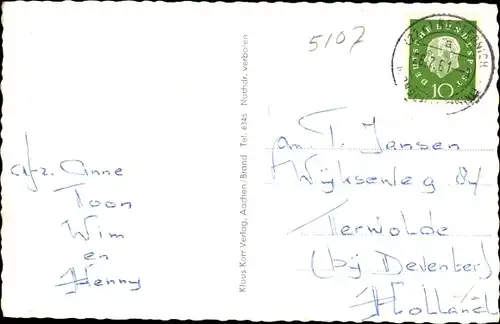 5107
DEUTSCHE BUNDESPOST
10
afz. Anne
Toon
Wim
en
Henny
Klaus Karr Verlag, Aachen/Brand Tel. 6345 Nachdr. verboten
fam. T. Jansen
84
Terwolde
(bij Deventer)
Holland